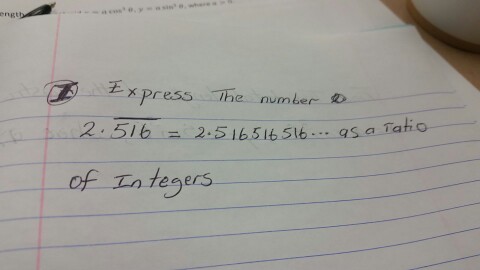 ength
= a cos³ θ, y = a sin³ θ, where a > 0
I Express The number
2.5̅1̅6̅ = 2.516516516... as a ratio
of Integers